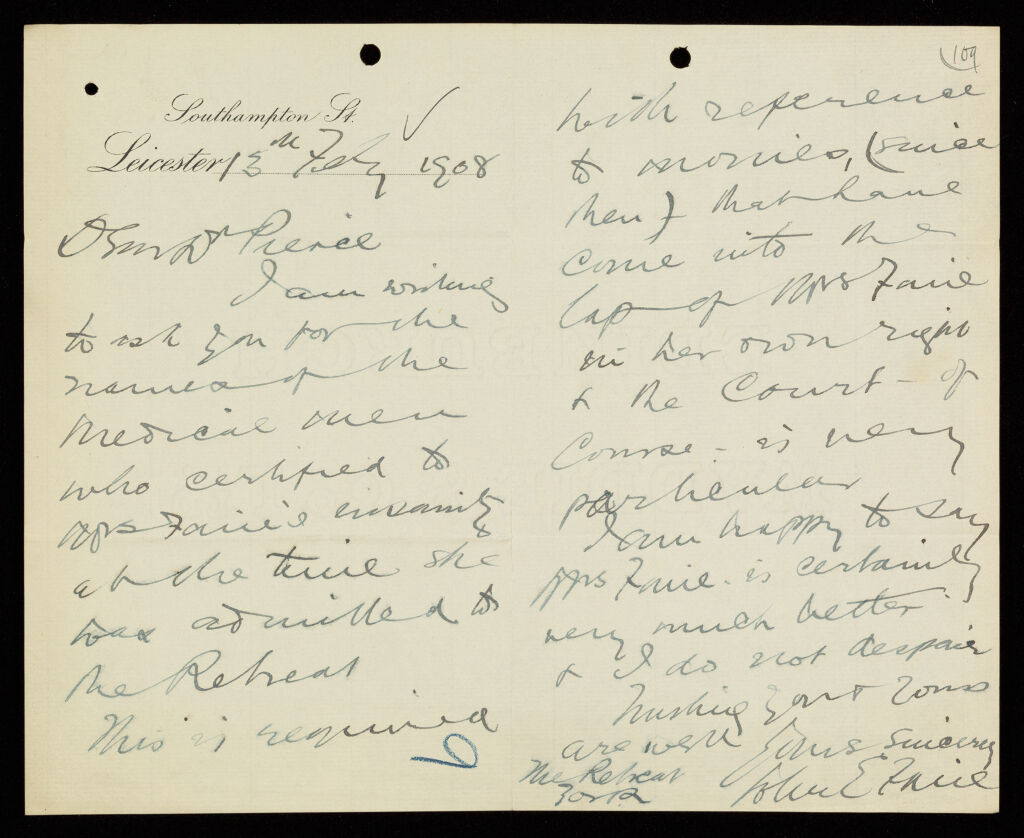 Southampton St.
Leicester 13th Feby 1908
Dear Dr Pierce
I am writing
to ask you for the
names of the
Medical men
who certified to
Mrs Faire's insanity
at the time she
was admitted to
the Retreat
This is required
6
109
with reference
to monies, (since
then) that have
come into the
lap of Mrs Faire
in her own right
& the Court - of
Course - is very
particular
I am happy to say
Mrs Faire is certainly
very much better
& I do not despair
Trusting you & yours
are well Yours sincerely
John E Faire
The Retreat
York